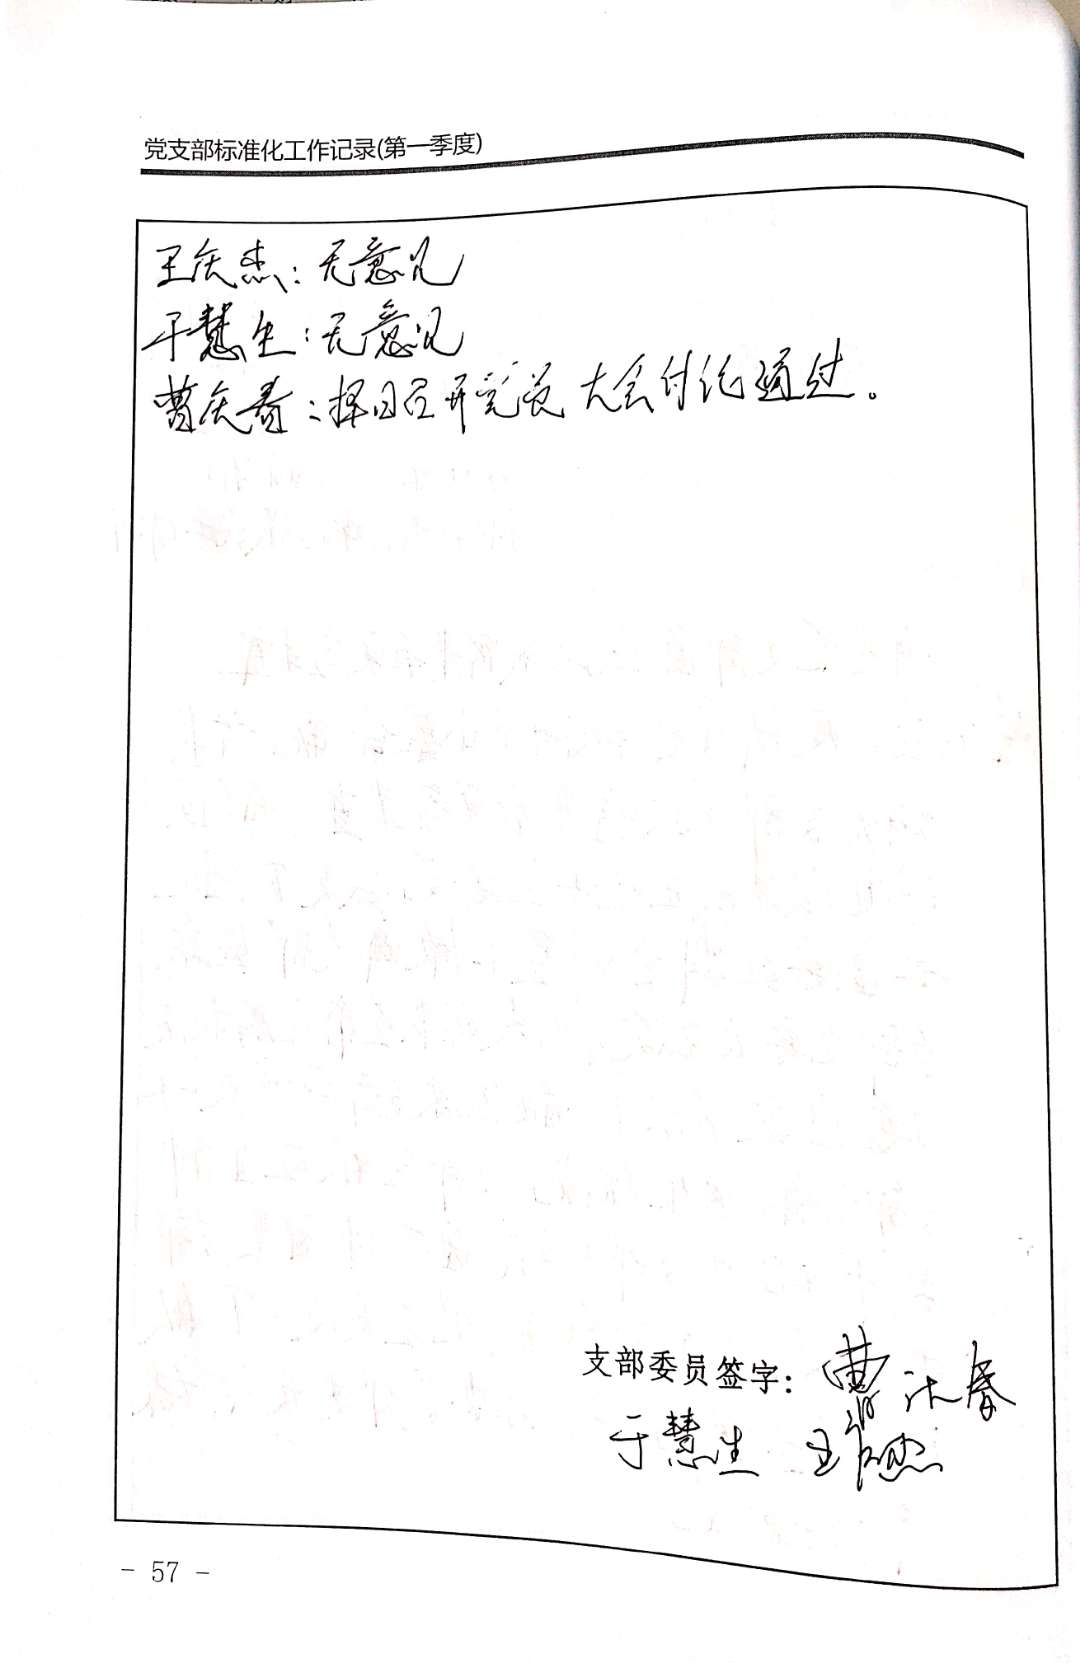 党支部标准化工作记录(第一季度)
王庆杰：无意见
于慧生：无意见
曹庆春：择日召开党员大会付论通过。
支部委员签字：曹庆春
于慧生 王庆杰
- 57 -